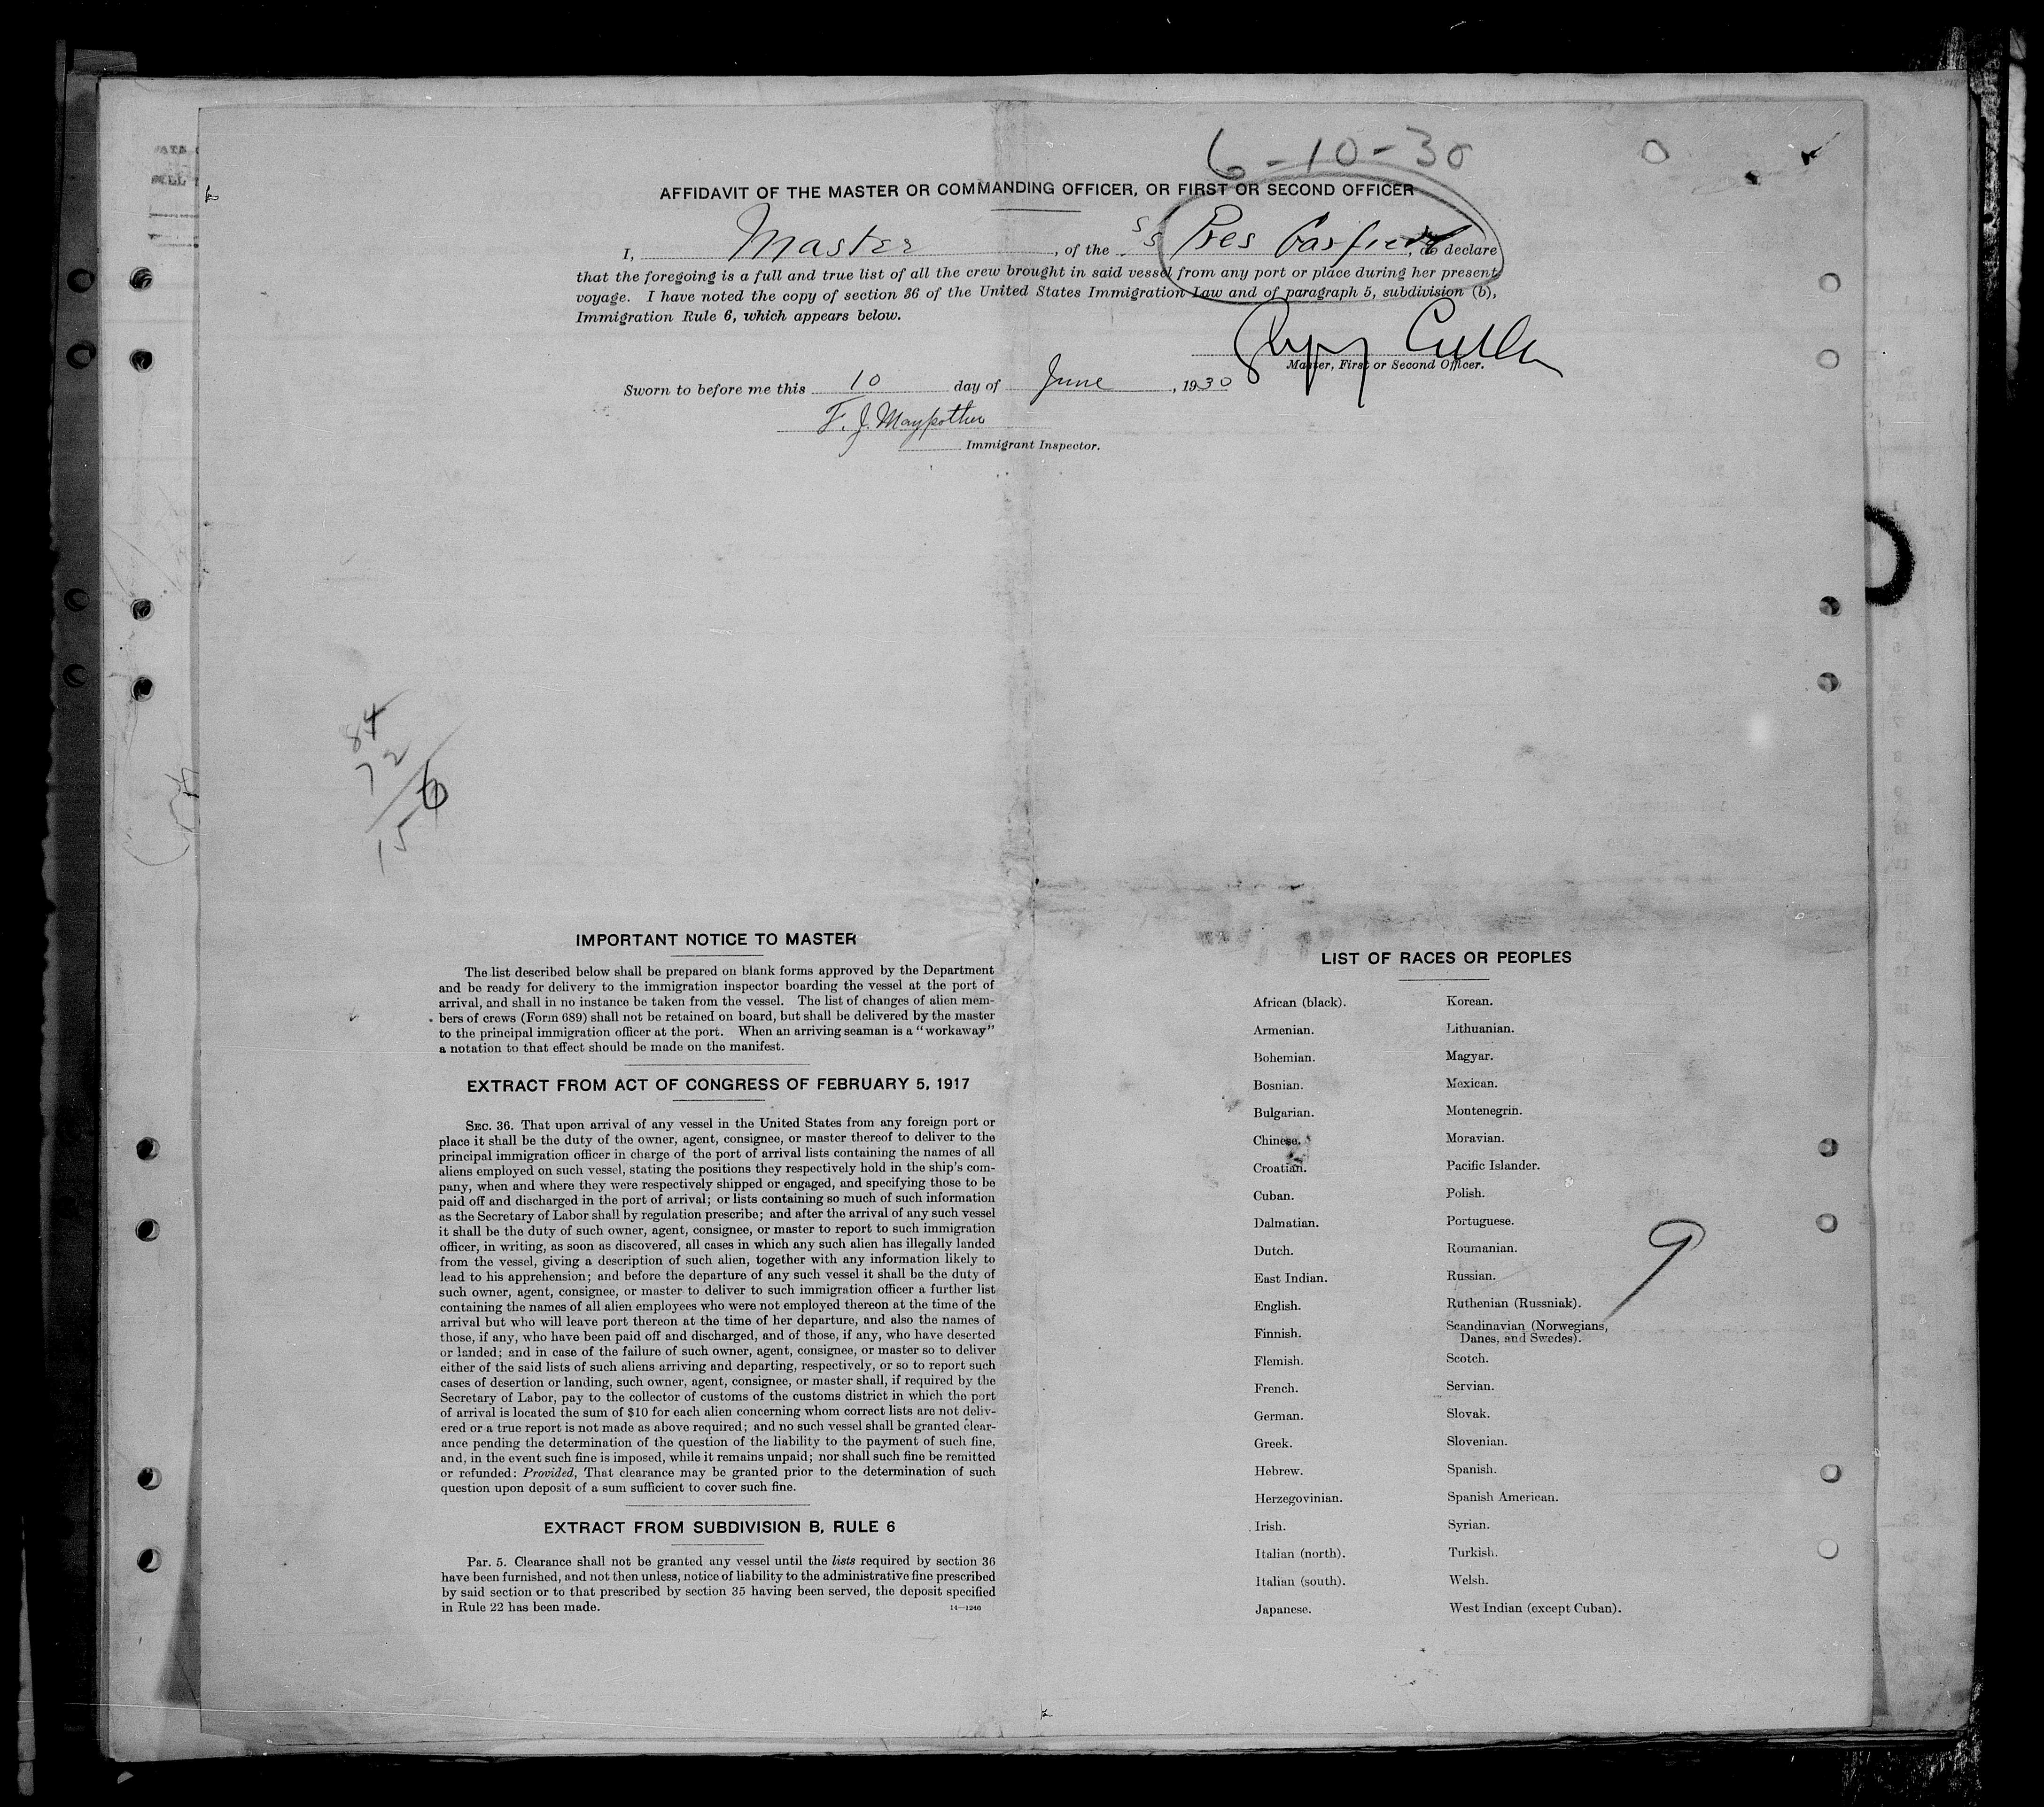 6-10-30
AFFIDAVIT OF THE MASTER OR COMMANDING OFFICER, OR FIRST OR SECOND OFFICER
I, Master, of the SS Pres Garfield, do declare
that the foregoing is a full and true list of all the crew brought in said vessel from any port or place during her present
voyage. I have noted the copy of section 36 of the United States Immigration Law and of paragraph 5, subdivision (b),
Immigration Rule 6, which appears below.
Cullen
Master, First or Second Officer.
Sworn to before me this 10 day of June, 1930
F. J. Maypother
Immigrant Inspector.
84
72
156
IMPORTANT NOTICE TO MASTER
The list described below shall be prepared on blank forms approved by the Department
and be ready for delivery to the immigration inspector boarding the vessel at the port of
arrival, and shall in no instance be taken from the vessel. The list of changes of alien mem-
bers of crews (Form 689) shall not be retained on board, but shall be delivered by the master
to the principal immigration officer at the port. When an arriving seaman is a "workaway"
a notation to that effect should be made on the manifest.
EXTRACT FROM ACT OF CONGRESS OF FEBRUARY 5, 1917
SEC. 36. That upon arrival of any vessel in the United States from any foreign port or
place it shall be the duty of the owner, agent, consignee, or master thereof to deliver to the
principal immigration officer in charge of the port of arrival lists containing the names of all
aliens employed on such vessel, stating the positions they respectively hold in the ship's com-
pany, when and where they were respectively shipped or engaged, and specifying those to be
paid off and discharged in the port of arrival; or lists containing so much of such information
as the Secretary of Labor shall by regulation prescribe; and after the arrival of any such vessel
it shall be the duty of such owner, agent, consignee, or master to report to such immigration
officer, in writing, as soon as discovered, all cases in which any such alien has illegally landed
from the vessel, giving a description of such alien, together with any information likely to
lead to his apprehension; and before the departure of any such vessel it shall be the duty of
such owner, agent, consignee, or master to deliver to such immigration officer a further list
containing the names of all alien employees who were not employed thereon at the time of the
arrival but who will leave port thereon at the time of her departure, and also the names of
those, if any, who have been paid off and discharged, and of those, if any, who have deserted
or landed; and in case of the failure of such owner, agent, consignee, or master so to deliver
either of the said lists of such aliens arriving and departing, respectively, or so to report such
cases of desertion or landing, such owner, agent, consignee, or master shall, if required by the
Secretary of Labor, pay to the collector of customs of the customs district in which the port
of arrival is located the sum of $10 for each alien concerning whom correct lists are not deliv-
ered or a true report is not made as above required; and no such vessel shall be granted clear-
ance pending the determination of the question of the liability to the payment of such fine,
and, in the event such fine is imposed, while it remains unpaid; nor shall such fine be remitted
or refunded: Provided, That clearance may be granted prior to the determination of such
question upon deposit of a sum sufficient to cover such fine.
EXTRACT FROM SUBDIVISION B, RULE 6
Par. 5. Clearance shall not be granted any vessel until the lists required by section 36
have been furnished, and not then unless, notice of liability to the administrative fine prescribed
by said section or to that prescribed by section 35 having been served, the deposit specified
in Rule 22 has been made.
14—1240
LIST OF RACES OR PEOPLES
African (black). Korean.
Armenian. Lithuanian.
Bohemian. Magyar.
Bosnian. Mexican.
Bulgarian. Montenegrin.
Chinese. Moravian.
Croatian. Pacific Islander.
Cuban. Polish.
Dalmatian. Portuguese.
Dutch. Roumanian.
East Indian. Russian.
English. Ruthenian (Russniak).
Finnish. Scandinavian (Norwegians,
Danes, and Swedes).
Flemish. Scotch.
French. Servian.
German. Slovak.
Greek. Slovenian.
Hebrew. Spanish.
Herzegovinian. Spanish American.
Irish. Syrian.
Italian (north). Turkish.
Italian (south). Welsh.
Japanese. West Indian (except Cuban).
9